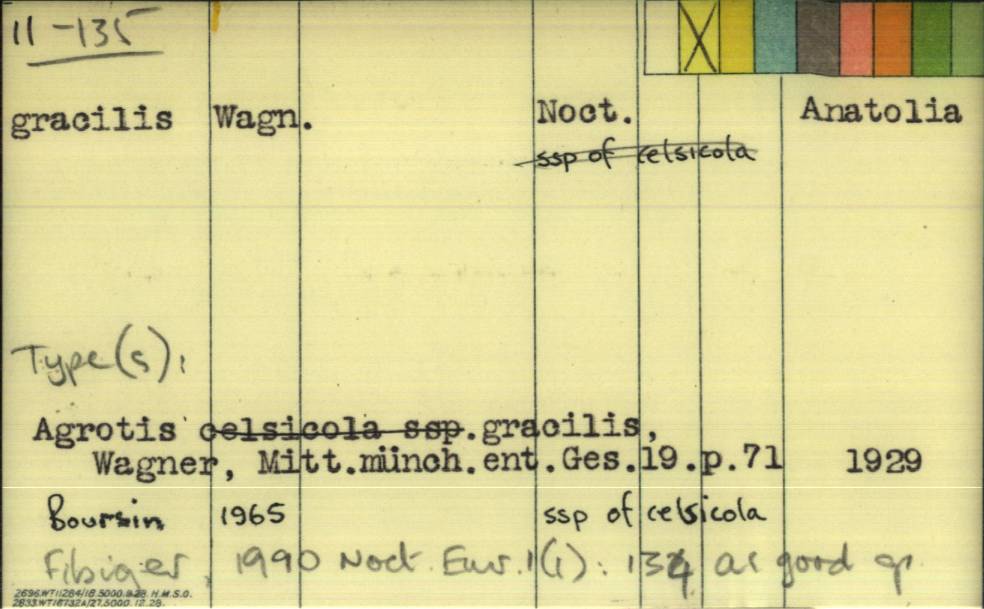 11-135
gracilis Wagn. Noct. Anatolia
ssp of celsicola
Type(s):
Agrotis celsicola ssp. gracilis,
Wagner, Mitt.münch.ent.Ges.19.p.71 1929
Boursin 1965 ssp of celsicola
Fibiger, 1990 Noct. Eur. 1(1): 134 as good sp.
2696.WT11284/18.5000.9.28. H.M.S.O.
2833.WT16732A/27.5000.12.28.